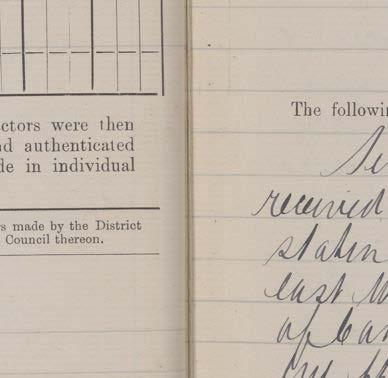 ctors were then
nd authenticated
de in individual
s made by the District
Council thereon.
The followin
received
staten
east
of